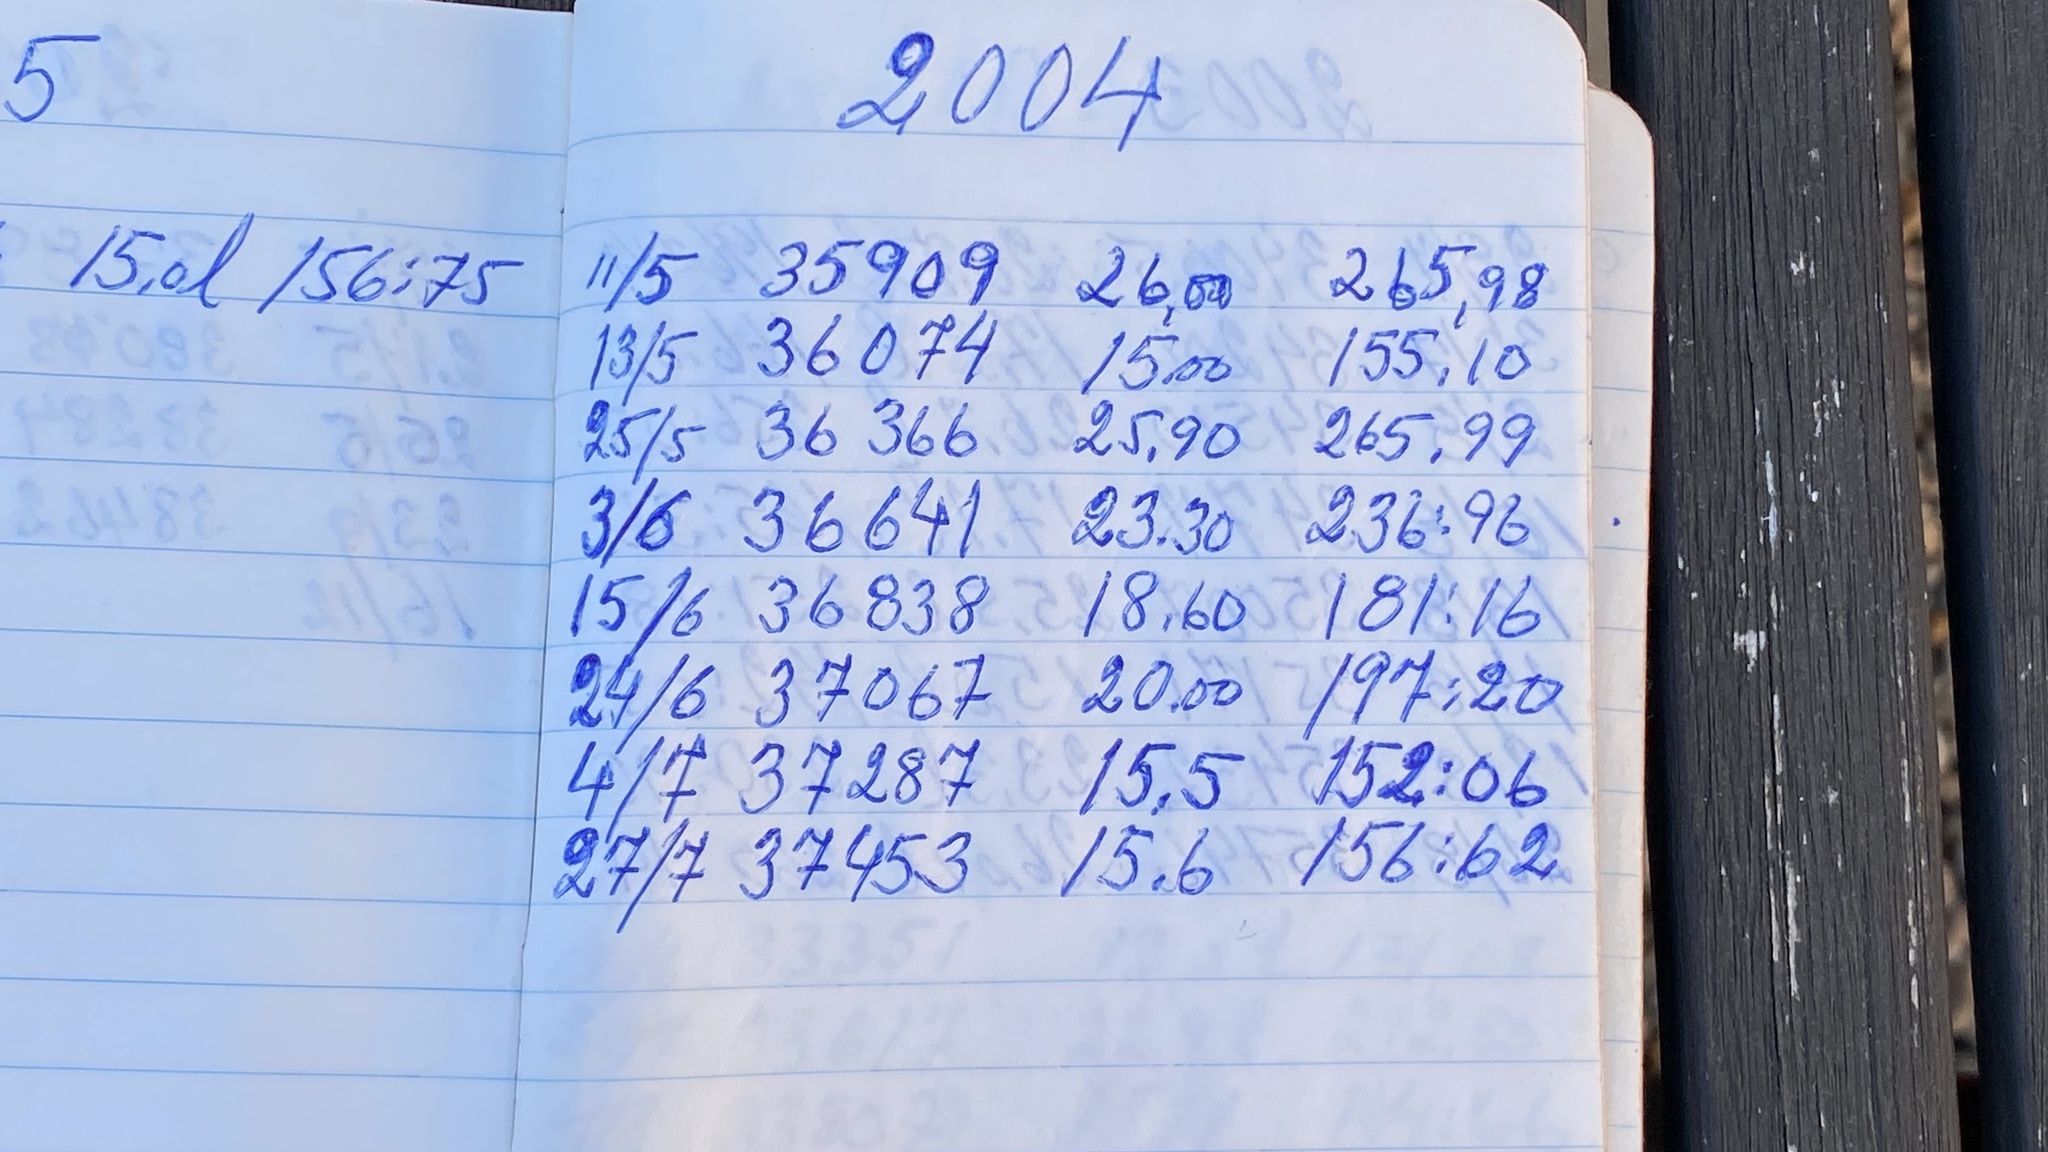 5
15,0l 156:75
2004
11/5 35909 26,00 265,98
13/5 36074 15.00 155.10
25/5 36 366 25.90 265.99
3/6 36641 23.30 236:96
15/6 36838 18.60 181:16
24/6 37067 20.00 197:20
4/7 37287 15.5 152:06
27/7 37453 15.6 156:62